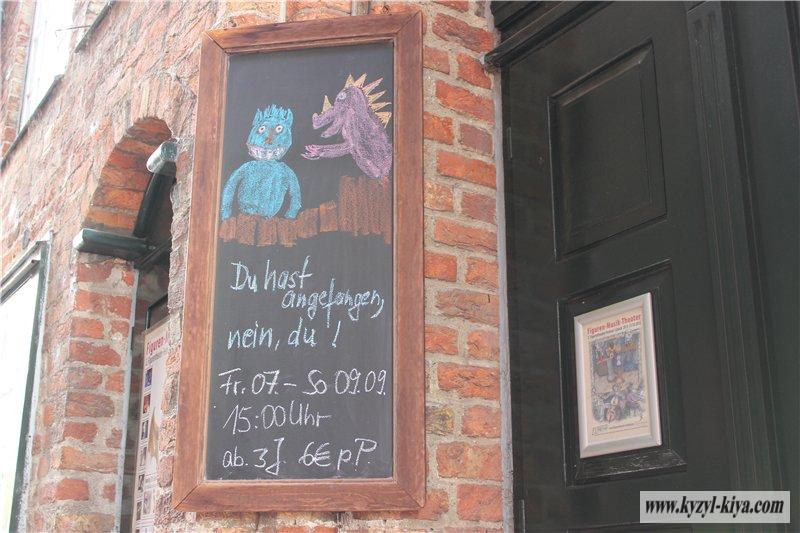 Du hast
angefangen,
nein, du!
Fr. 07. - So 09.09.
15:00 Uhr
ab. 3J. 6€ pP.
Figuren-Musik-Theater
www.kyzyl-kiya.com